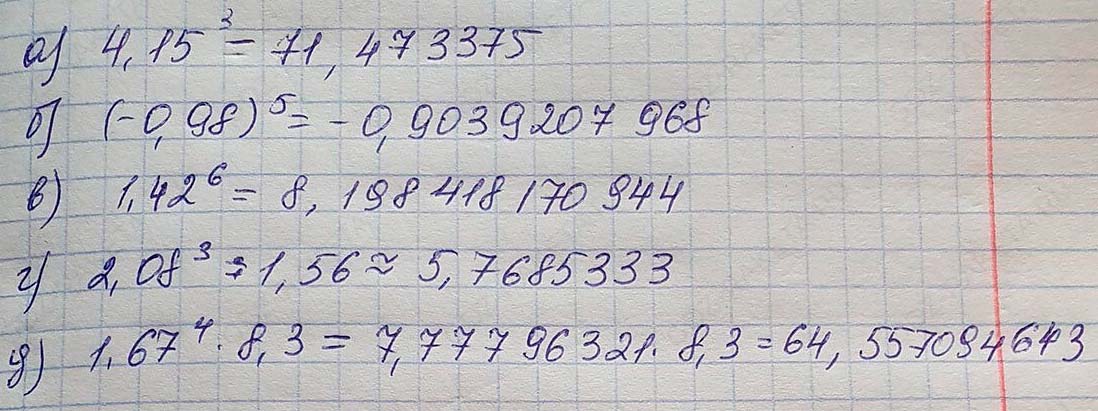 а) 4,15³ = 71,473375
б) (-0,98)⁵ = -0,9039207968
в) 1,42⁶ = 8,198418170944
г) 2,08³ : 1,56 ≈ 5,7685333
д) 1,67⁴ · 8,3 = 7,77796321 · 8,3 = 64,557094643